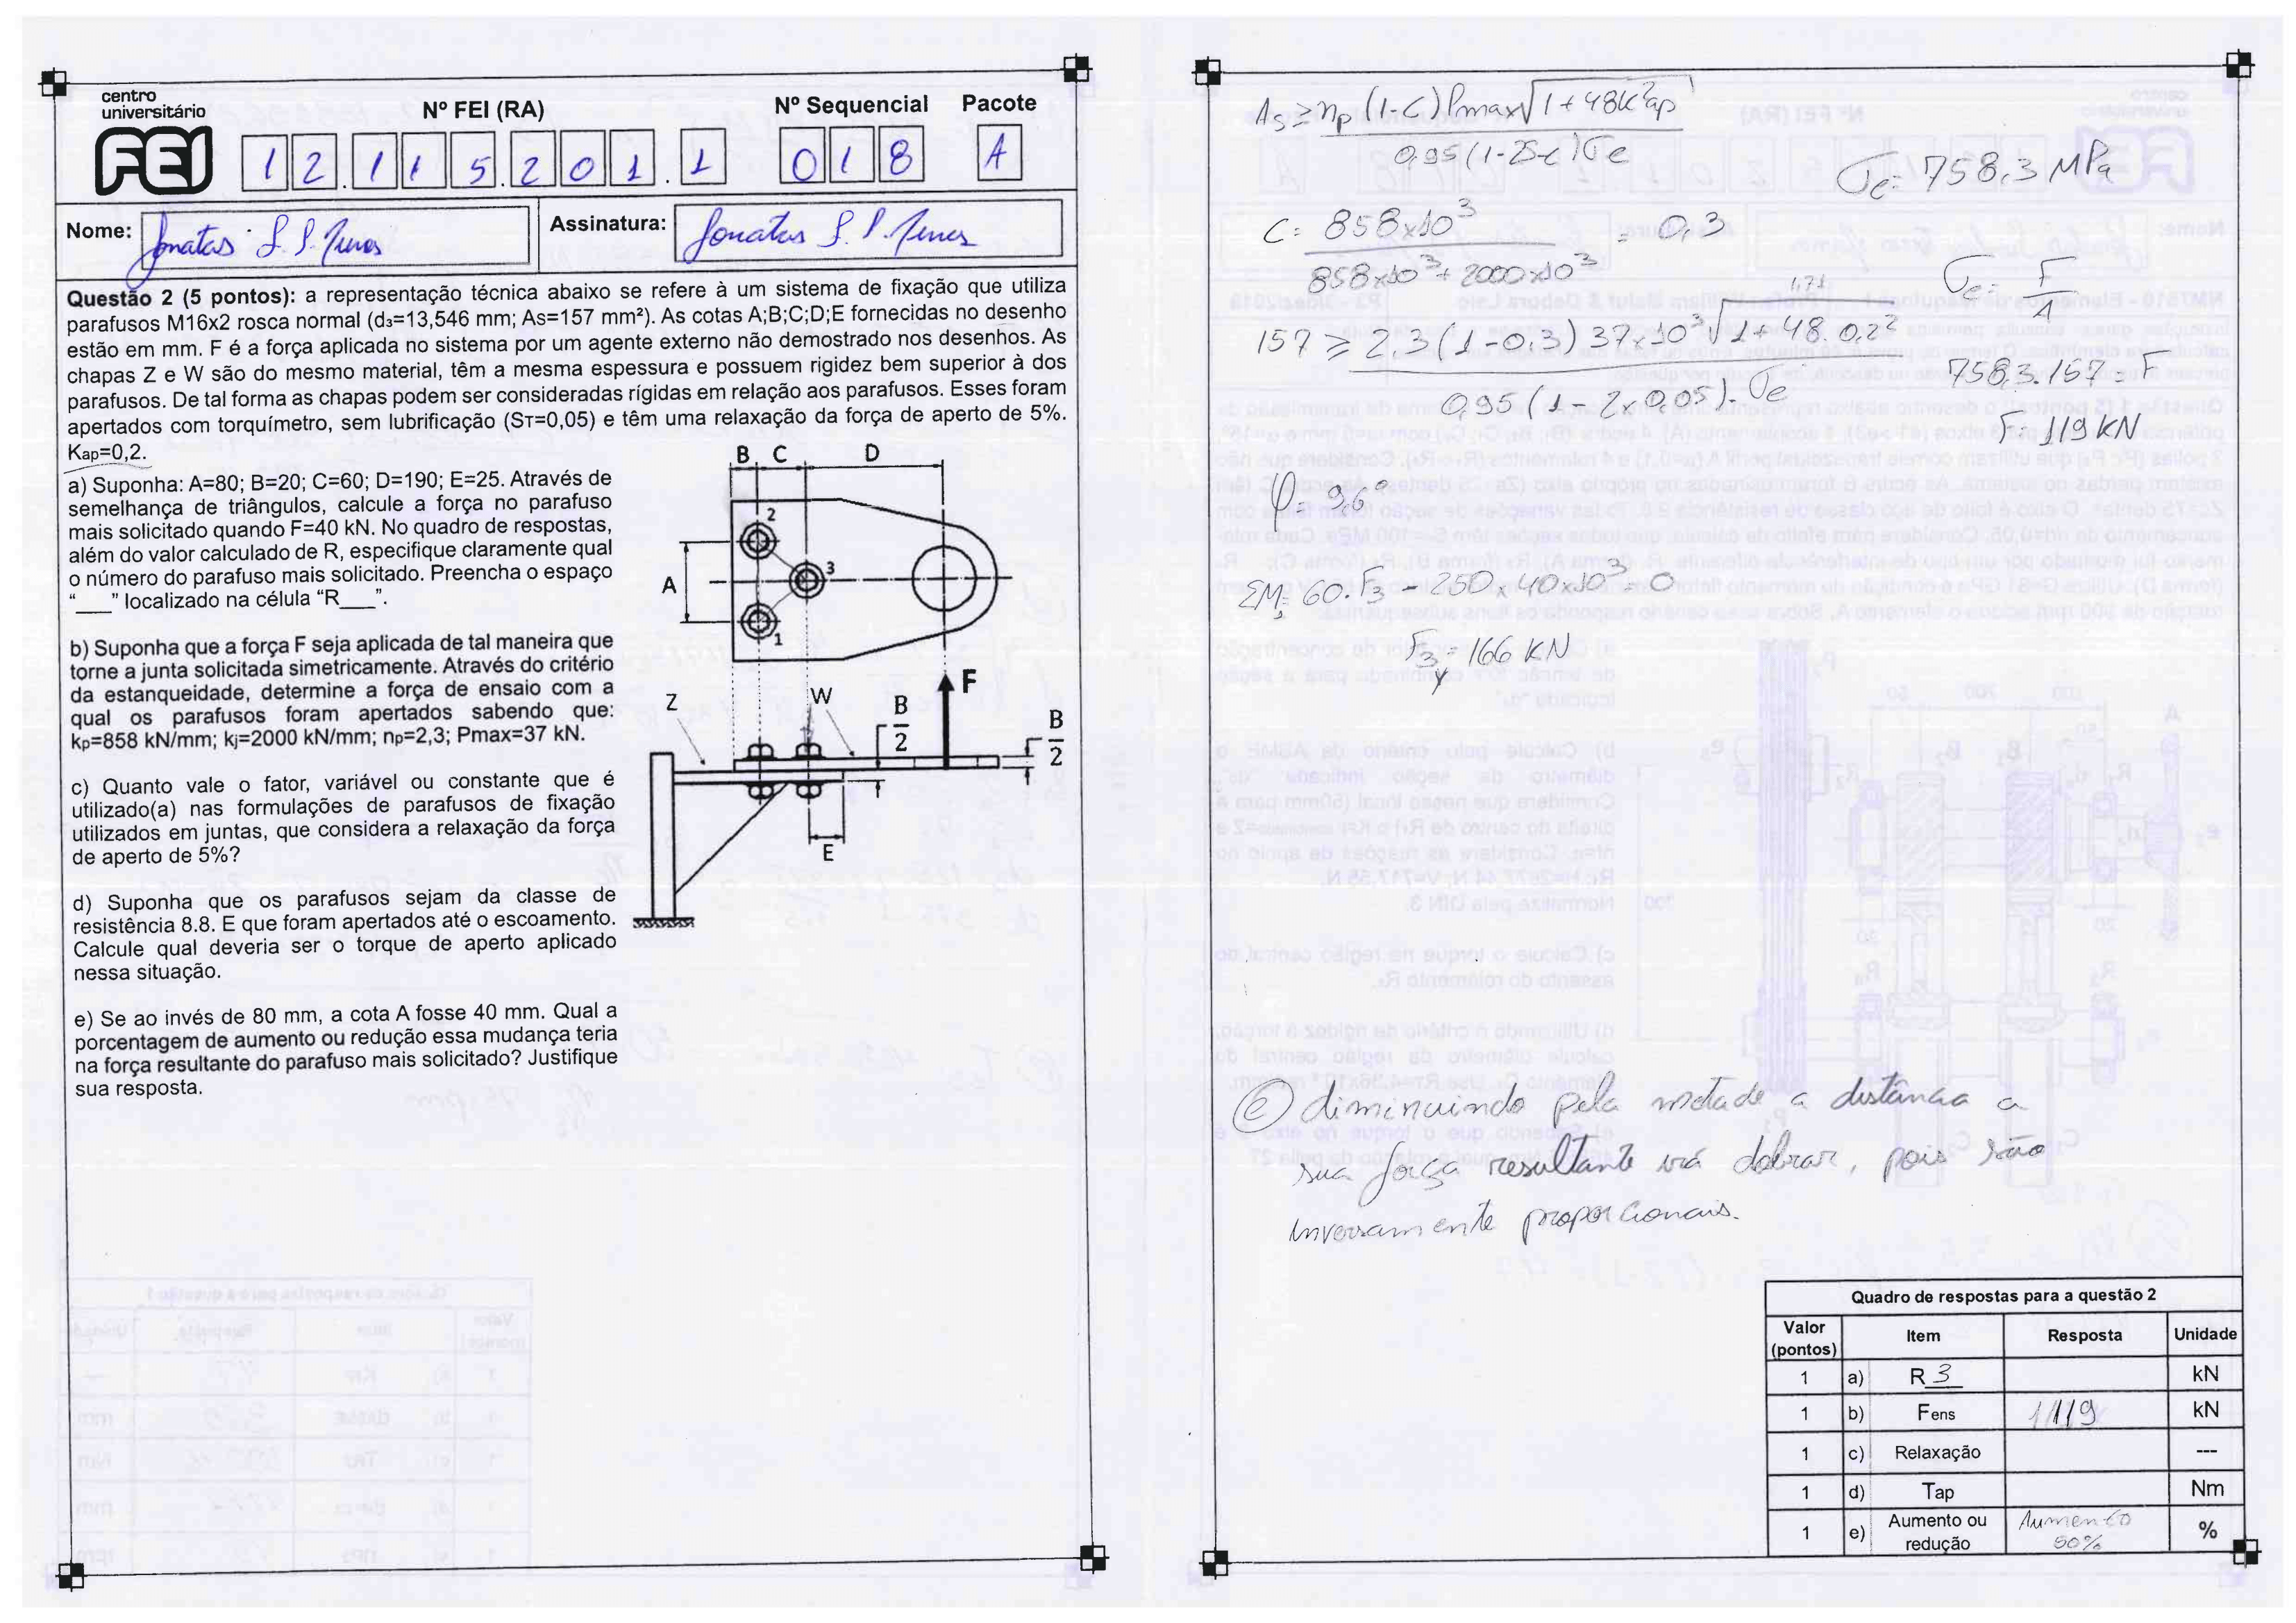 centro
universitário
FEI
Nº FEI (RA)
Nº Sequencial
Pacote
1 2 . 1 1 5 . 2 0 1 . 1
0 1 8
A
Nome: Jonatas
Assinatura: Jonatas
Questão 2 (5 pontos): a representação técnica abaixo se refere à um sistema de fixação que utiliza
parafusos M16x2 rosca normal (d₃=13,546 mm; As=157 mm²). As cotas A;B;C;D;E fornecidas no desenho
estão em mm. F é a força aplicada no sistema por um agente externo não demostrado nos desenhos. As
chapas Z e W são do mesmo material, têm a mesma espessura e possuem rigidez bem superior à dos
parafusos. De tal forma as chapas podem ser consideradas rígidas em relação aos parafusos. Esses foram
apertados com torquímetro, sem lubrificação (Sᴛ=0,05) e têm uma relaxação da força de aperto de 5%.
Kap=0,2.
a) Suponha: A=80; B=20; C=60; D=190; E=25. Através de
semelhança de triângulos, calcule a força no parafuso
mais solicitado quando F=40 kN. No quadro de respostas,
além do valor calculado de R, especifique claramente qual
o número do parafuso mais solicitado. Preencha o espaço
“___” localizado na célula “R___”.
b) Suponha que a força F seja aplicada de tal maneira que
torne a junta solicitada simetricamente. Através do critério
da estanqueidade, determine a força de ensaio com a
qual os parafusos foram apertados sabendo que:
kp=858 kN/mm; kj=2000 kN/mm; np=2,3; Pmax=37 kN.
c) Quanto vale o fator, variável ou constante que é
utilizado(a) nas formulações de parafusos de fixação
utilizados em juntas, que considera a relaxação da força
de aperto de 5%?
d) Suponha que os parafusos sejam da classe de
resistência 8.8. E que foram apertados até o escoamento.
Calcule qual deveria ser o torque de aperto aplicado
nessa situação.
e) Se ao invés de 80 mm, a cota A fosse 40 mm. Qual a
porcentagem de aumento ou redução essa mudança teria
na força resultante do parafuso mais solicitado? Justifique
sua resposta.
B C D
2
3
A
1
F
Z
W
B
2
B
2
E
As ≥ np (1-C) Pmax √1+48K²ap
0,95 (1-2S-c) σe
σe = 758,3 MPa
C = 858x10³ = 0,3
858x10³ + 2000x10³
σe = F
A
1,71
157 ≥ 2,3 (1-0,3) 37x10³ √1+48.0,2²
0,95 (1-2x0,05). σe
758,3.157 = F
F = 119 kN
φ = 9,6°
ΣM₂ = 60.F₃ - 250 x 40x10³ = 0
F₃y = 166 KN
e) diminuindo pela metade a distância a
sua força resultante irá dobrar, pois são
inversamente proporcionais.
Quadro de respostas para a questão 2
Valor (pontos) Item Resposta Unidade
1 a) R 3 kN
1 b) Fens 119 kN
1 c) Relaxação ---
1 d) Tap Nm
1 e) Aumento ou redução Aumento 50% %